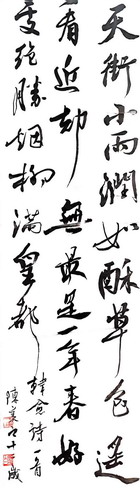 天街小雨潤如酥草色遙
看近却無最是一年春好
處絕勝烟柳滿皇都
韓愈詩一首